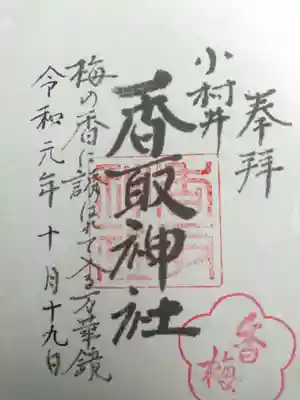 奉拝
小村井
香取神社
梅の香に誘はれて入る万華鏡
令和元年十月十九日
香梅